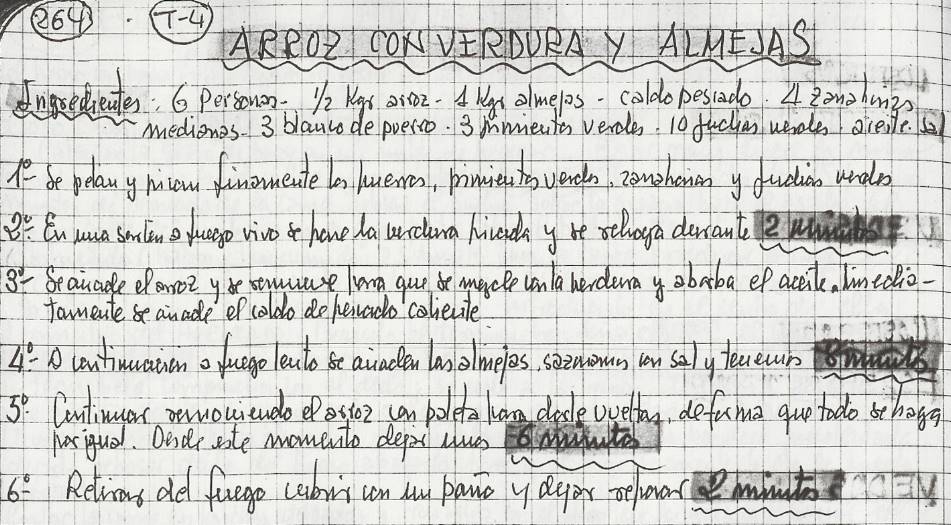 264 . T-4
ARROZ CON VERDURA Y ALMEJAS
Ingredientes. 6 Personas - 1/2 Kgr arroz - 1 Kgr almejas - caldo pescado . 4 zanahorias
medianas - 3 blanco de puerro . 3 pimientos verdes . 10 judias verdes . aceite . sal
1º- Se pelan y pican finamente los puerros, pimientos verdes, zanahorias y judias verdes
2º- En una sartén a fuego vivo se pone la verdura picada y se rehoga durante 2 minutos
3º- Se añade el arroz y se remueve para que se mezcle con la verdura y absorba el aceite. Inmedia-
tamente se añade el caldo de pescado caliente.
4º- A continuación a fuego lento se añaden las almejas, sazonamos con sal y tenemos 8 minutos
5º- Continuar removiendo el arroz con paleta para darle vueltas, de forma que todo se haga
por igual. Desde este momento dejar unos 6 minutos
6º- Retirar del fuego cubrir con un paño y dejar reposar 2 minutos